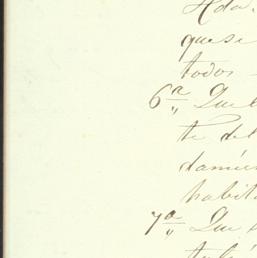 Hda.
que se
todos
6ª Que l
te del
damien
habita
7ª Que